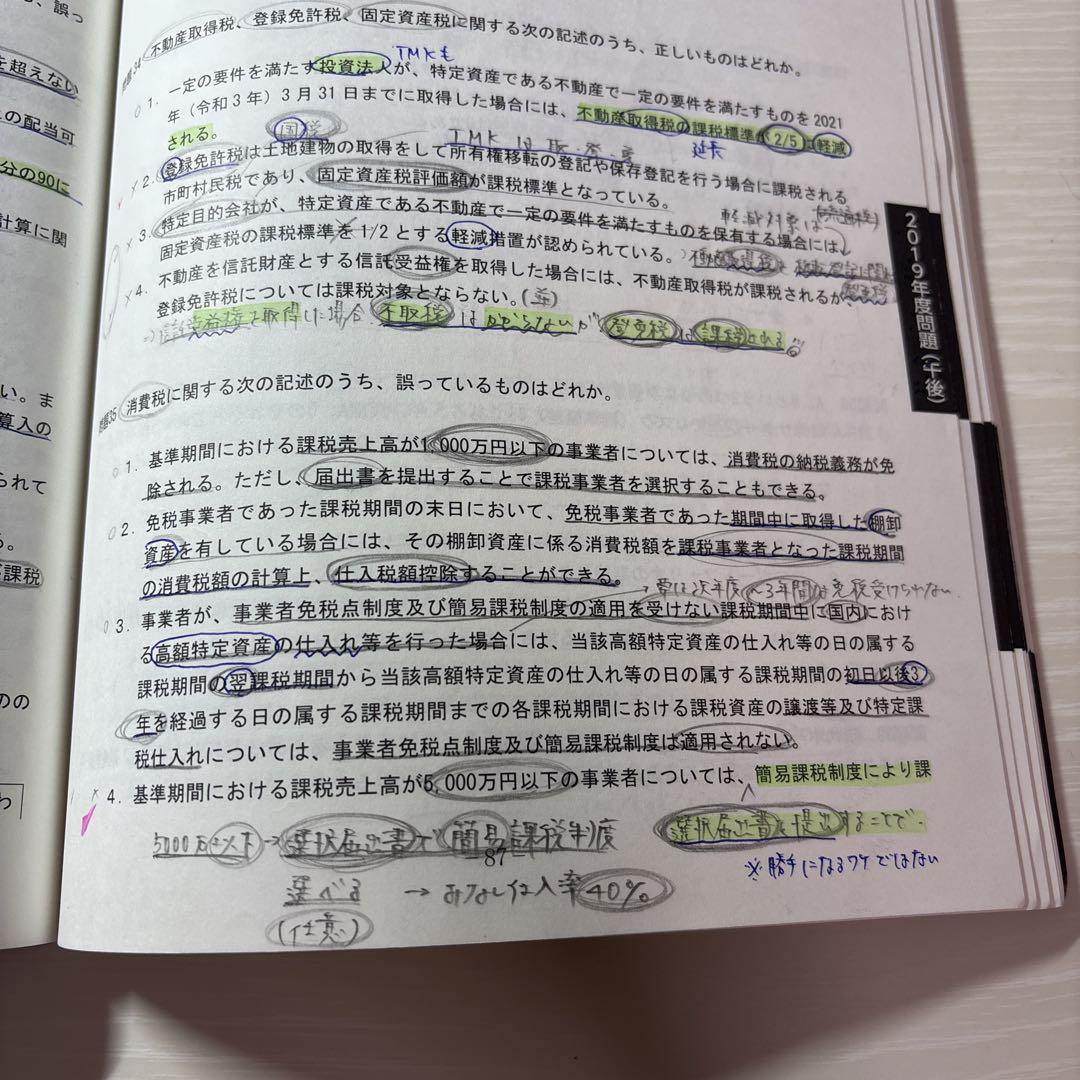 を超えない
の配当可
分の90に
計算に関
い。ま
算入の
られて
る。
課税
のの
わ
不動産取得税、登録免許税、固定資産税に関する次の記述のうち、正しいものはどれか。
TMKも
1. 一定の要件を満たす投資法人が、特定資産である不動産で一定の要件を満たすものを2021
年(令和3年)3月31日までに取得した場合には、不動産取得税の課税標準が2/5に軽減
される。
国税
延長
2. 登録免許税は土地建物の取得をして所有権移転の登記や保存登記を行う場合に課税される
市町村民税であり、固定資産税評価額が課税標準となっている。
軽減対象は
3. 特定目的会社が、特定資産である不動産で一定の要件を満たすものを保有する場合には、
固定資産税の課税標準を1/2とする軽減措置が認められている。
4. 不動産を信託財産とする信託受益権を取得した場合には、不動産取得税が課税されるが、
登録免許税については課税対象とならない。(逆)
⇒信託受益権を取得した場合 不取税はかからないが登免税は課税される。
2019年度問題(午後)
問題35 消費税に関する次の記述のうち、誤っているものはどれか。
1. 基準期間における課税売上高が1,000万円以下の事業者については、消費税の納税義務が免
除される。ただし、届出書を提出することで課税事業者を選択することもできる。
2. 免税事業者であった課税期間の末日において、免税事業者であった期間中に取得した棚卸
資産を有している場合には、その棚卸資産に係る消費税額を課税事業者となった課税期間
の消費税額の計算上、仕入税額控除することができる。
3年間は免税受けられない
3. 事業者が、事業者免税点制度及び簡易課税制度の適用を受けない課税期間中に国内におけ
る高額特定資産の仕入れ等を行った場合には、当該高額特定資産の仕入れ等の日の属する
課税期間の翌課税期間から当該高額特定資産の仕入れ等の日の属する課税期間の初日以後3
年を経過する日の属する課税期間までの各課税期間における課税資産の譲渡等及び特定課
税仕入れについては、事業者免税点制度及び簡易課税制度は適用されない。
4. 基準期間における課税売上高が5,000万円以下の事業者については、簡易課税制度により課
選択届出書を提出することで
5000万以下→選択届出書で簡易課税制度
87
※勝手になるワケではない
選べる → みなし仕入率40%
(任意)